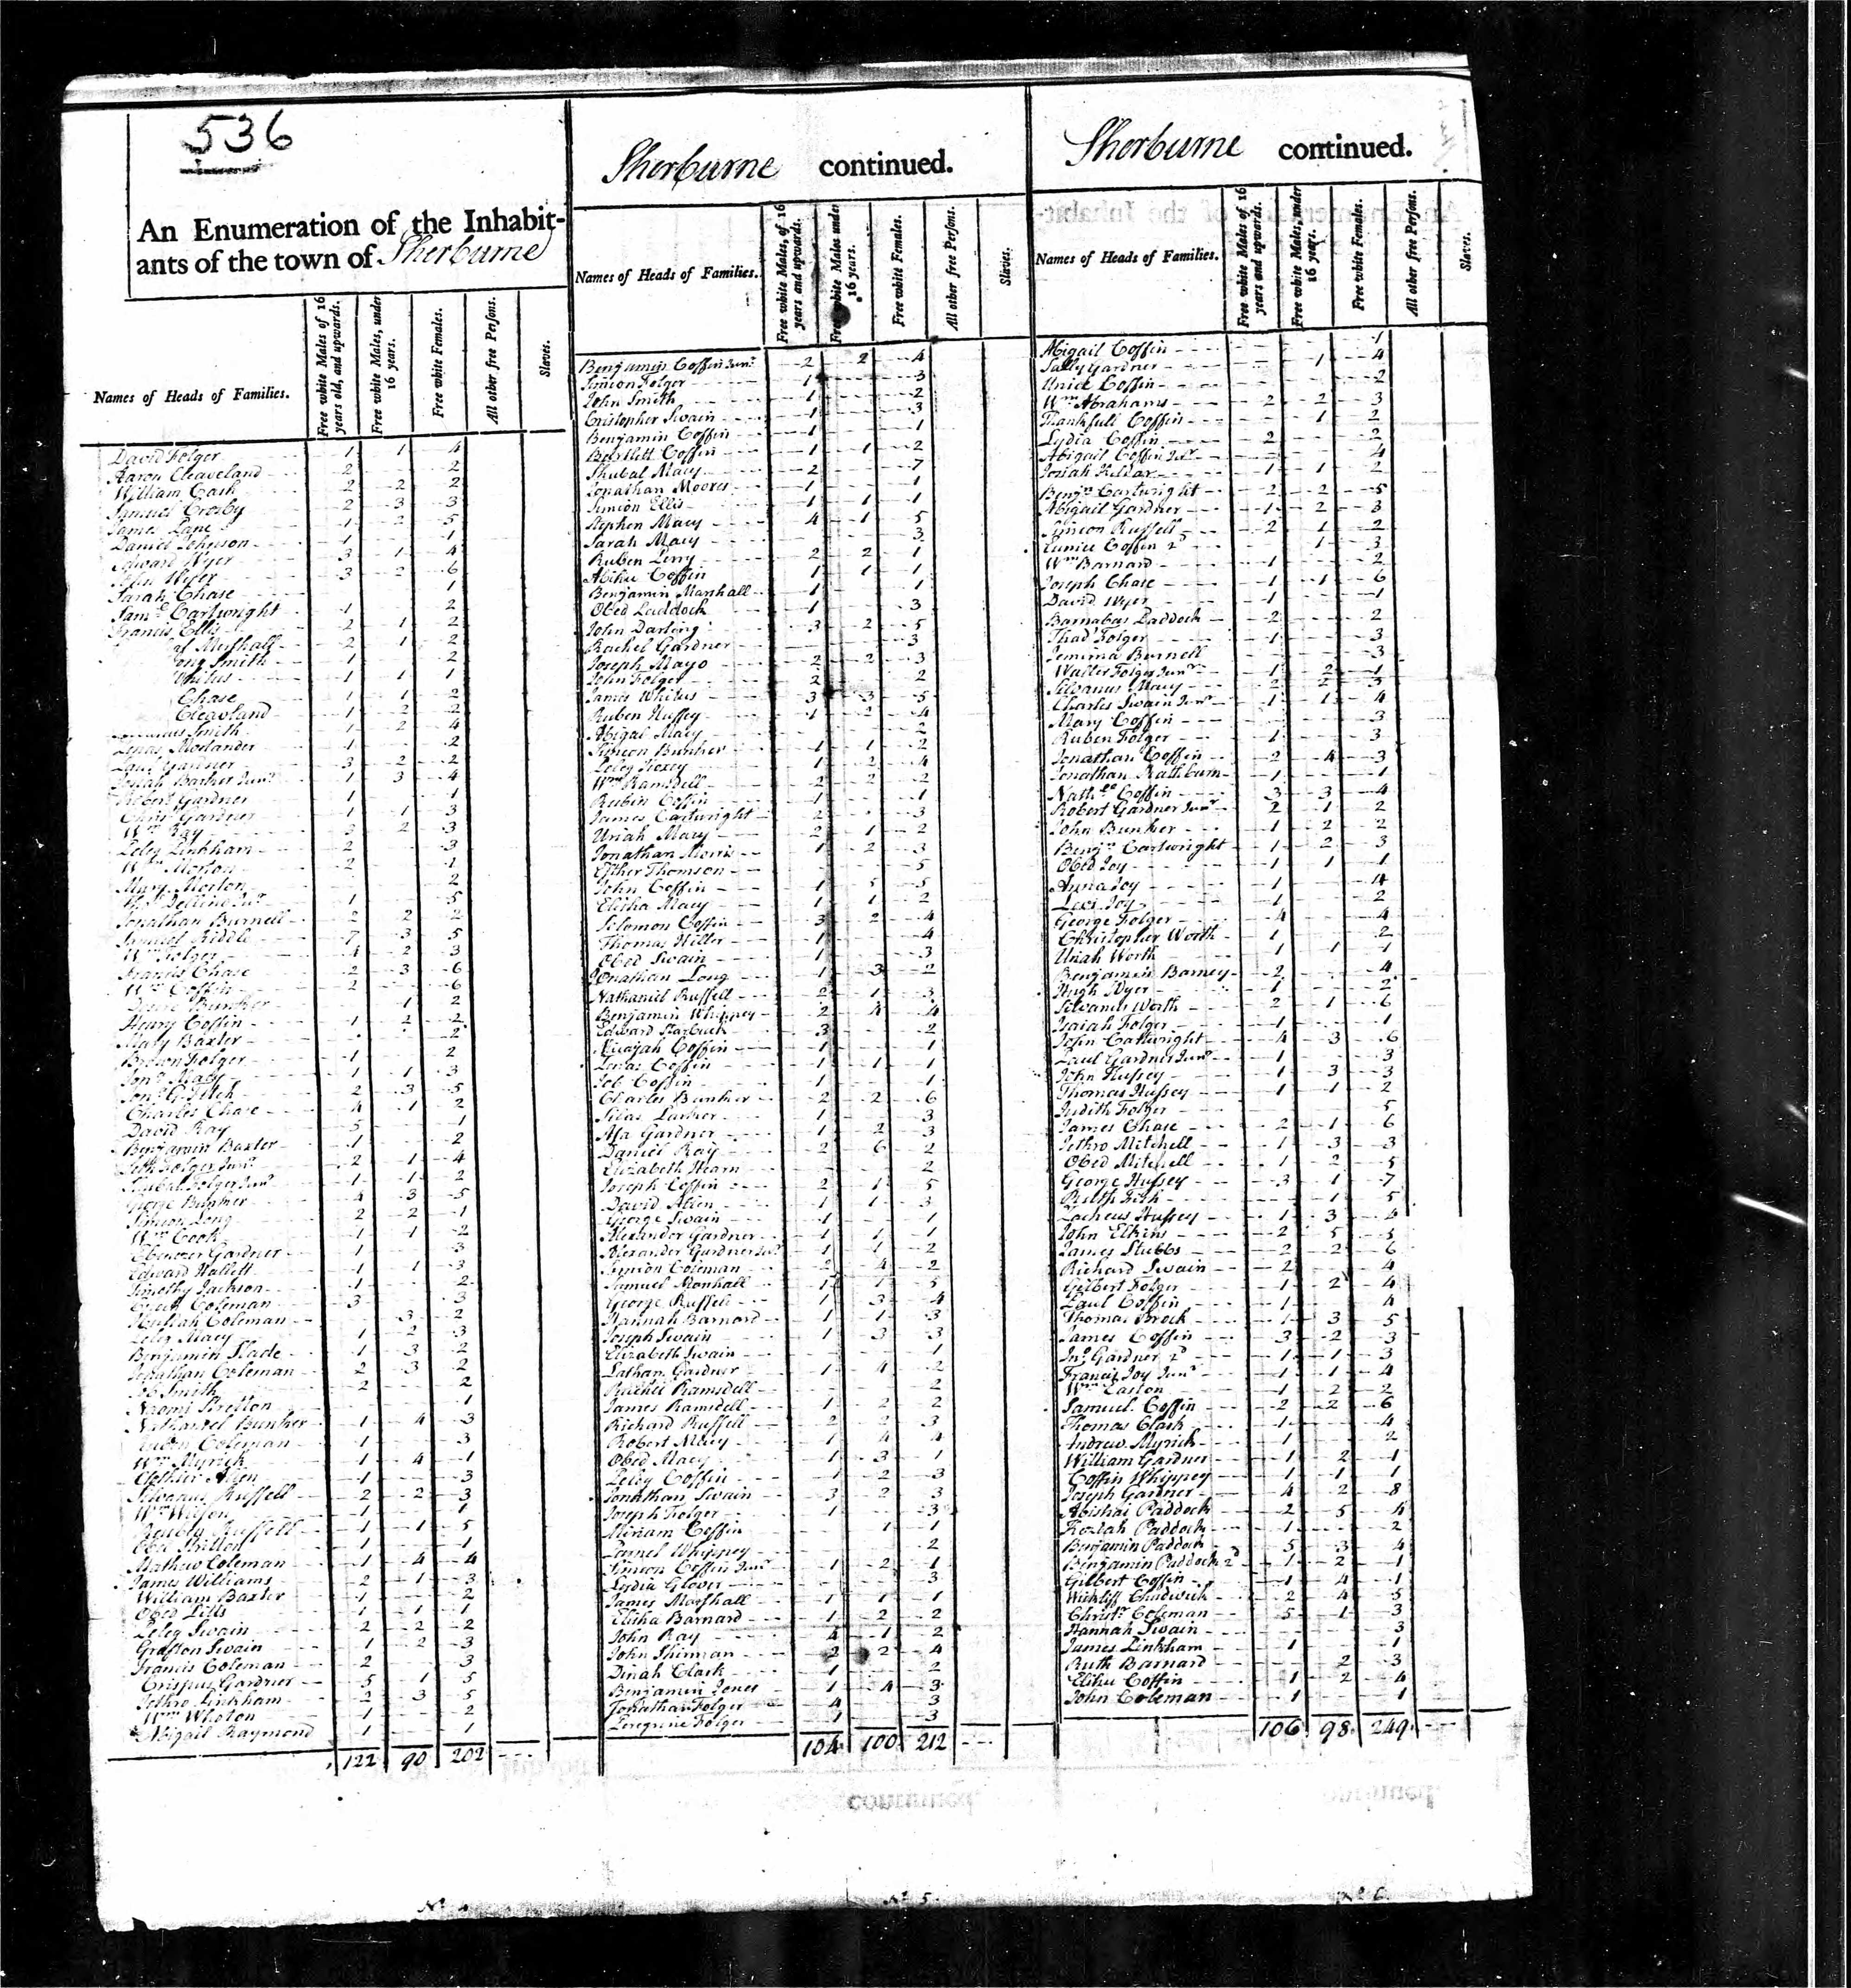 536
An Enumeration of the Inhabit-
ants of the town of Sherburne
Names of Heads of Families.
Free white Males of 16 years old, and upwards.
Free white Males, under 16 years.
Free white Females.
All other free Persons.
Slaves.
David Folger 1 1 4
Aaron Cleaveland 2 2
William Cash 2 2 2
Samuel Crosby 2 3 3
James Lane 1 2 5
Daniel Johnson 1 1
Edward Wyer 3 1 4
John Wyer 3 2 6
Sarah Chase 1
Saml Cartwright 1 2
Francis Ellis 2 1 2
Marshall 2 1 2
Smith 1 2
Whitus 1 1 1
Chase 1 1 2
Cleaveland 1 2 2
Smith 1 2 4
Moslander 1 2
Paul Gardner 3 2 2
Josiah Barker Junr 1 3 4
Robert Gardner 1 1
Gardner 1 1 3
Wm Ray 3 2 3
Peleg Pinkham 2 3
Wm Morton 2 1
Mary Morton 2
1 5
Jonathan Burnell 2 2 2
Samuel Riddle 7 3 5
Wm Folger 4 2 3
Francis Chase 2 3 6
Wm Coffin 2 6
Bunker 1 2
Henry Coffin 1 2 2
Mary Baxter 2
Brown Folger 1 2
Jona Macy 1 1 3
Jona G. Fitch 2 3 5
Charles Chase 4 1 2
David Ray 5 1
Benjamin Baxter 1 2
Seth Folger Junr 2 1 4
Shubal Folger Junr 1 1 2
George Bunker 4 3 5
Simeon Long 2 2 1
Wm Cook 1 1 2
Ebenezer Gardner 1 3
Edward Hallett 1 1 3
Timothy Jackson 1 2
Coleman 3 3
Coleman 3 2
Peleg Macy 1 2 3
Benjamin Slade 1 3 2
Jonathan Coleman 2 3 2
Smith 2 2
Naomi Bretton 1
Nathaniel Bunker 1 4 3
Coleman 1 3
Wm Myrick 1 4 1
Allen 1 3
Silvanus Russell 2 2 3
Wm Wilson 1 1
Russell 1 1 5
Obed 1 1
Mathew Coleman 1 4 4
James Williams 2 1 3
William Baxter 1 2
Obed Pitts 1 1 1
Peleg Swain 2 2 2
Grafton Swain 1 2 3
Francis Coleman 2 3
Crispus Gardner 5 1 5
Jethro Pinkham 2 3 5
Wm Whoton 1 2
Abigail Raymond 1 1
122 90 202
Sherburne continued.
Names of Heads of Families.
Free white Males, of 16 years and upwards.
Free white Males under 16 years.
Free white Females.
All other free Persons.
Slaves.
Benjamin Coffin Junr 2 2 4
Simeon Folger 1 3
John Smith 1 2
Cristopher Swain 1 3
Benjamin Coffin 1 1
Bartlett Coffin 1 1 2
Shubal Macy 2 7
Jonathan Moores 1 1
Simeon Ellis 1 1 1
Stephen Macy 4 1 5
Sarah Macy 3
Ruben Perry 2 2 1
Abihu Coffin 1 1 1
Benjamin Marshall 1 1
Obed Paddock 1 3
John Darling 3 2 5
Rachel Gardner 3
Joseph Mayo 2 2 3
John Folger 2 2
James Whitus 3 3 5
Ruben Hussey 1 2 4
Abigal Macy 2
Simeon Bunker 1 1 2
Peleg Kexey 1 2 4
Wm Ramsdell 2 2 2
Rubin Coffin 1 1
James Cartwright 2 3
Uriah Macy 2 1 2
Jonathan Morris 1 2 3
Esther Thomson 5
John Coffin 1 5 5
Elisha Macy 1 1 2
Solomon Coffin 3 2 4
Thomas Hiller 1 4
Obed Swain 1 3
Jonathan Long 1 3 2
Nathaniel Russell 2 1 3
Benjamin Whippey 2 4 4
Edward Starbuck 3 2
Micajah Coffin 1 1
Zenas Coffin 1 1 1
Job Coffin 1 1
Charles Bunker 2 2 6
Silas Parker 1 3
Asa Gardner 1 2 3
Daniel Ray 2 6 2
Elizabeth Hearn 2
Joseph Coffin 2 1 5
David Allen 1 1 3
George Swain 1 1
Alexander Gardner 1 1 1
Alexander Gardner Junr 1 1 2
Simeon Coleman 2 4 2
Samuel Monhall 1 1 5
George Russell 1 3 4
Hannah Barnard 1 1 3
Joseph Swain 1 3 3
Elizabeth Swain 1
Latham Gardner 1 4 2
Rachel Ramsdell 2
James Ramsdell 1 2 2
Richard Russell 2 2 3
Robert Macy 1 4 4
Obed Macy 1 3 1
Peleg Coffin 1 2 3
Jonathan Swain 3 2 3
Joseph Folger 1 3
Miriam Coffin 1 1
Parnel Whippey 2
Simeon Coffin Junr 1 2 1
Lydia Glover 3
James Marshall 1 1 1
Elisha Barnard 1 2 2
John Ray 4 1 2
John Thurman 2 2 4
Dinah Clark 1 2
Benjamin Jones 1 4 3
Jonathan Folger 4 3
Peregrine Folger 1 3
104 100 212
Sherburne continued.
Names of Heads of Families.
Free white Males of 16 years and upwards.
Free white Males, under 16 years.
Free white Females.
All other free Persons.
Slaves.
Abigail Coffin 1
Sally Gardner 1 4
Unice Coffin 2
Wm Abrahams 2 2 3
Thankfull Coffin 1 2
Lydia Coffin 2 2
Abigail Coffin Junr 4
Josiah Kildar 1 1 2
Benjn Cartwright 2 2 5
Abigail Gardner 1 2 3
Simeon Russell 2 1 2
Eunice Coffin 2d 1 3
Wm Barnard 1 2
Joseph Chase 1 1 6
David Wyer 1 1
Barnabas Paddock 2 2
Thad Folger 1 3
Jemima Burnell 3
Walter Folger Junr 1 2 1
Silvanus Macy 2 2 3
Charles Swain Junr 1 1 4
Mary Coffin 3
Ruben Folger 1 3
Jonathan Coffin 2 4 3
Jonathan Rathburn 1 1
Nathl Coffin 3 3 4
Robert Gardner Junr 2 1 2
John Bunker 1 2 2
Benjn Cartwright 1 2 3
Obed Joy 1 1 1
Anna Joy 1 4
Levi Joy 1 2
George Folger 4 4
Christopher Worth 1 2
Uriah Worth 1 1 1
Benjamin Barney 2 4
Hugh Wyer 1 2
Silvanus Worth 2 1 6
Isaiah Folger 1 1
John Cartwright 4 3 6
Paul Gardner Junr 1 3
John Hussey 1 3 3
Thomas Hussey 1 1 2
Judith Folger 5
James Chase 2 1 6
Jethro Mitchell 1 3 3
Obed Mitchell 1 2 5
George Hussey 3 1 7
Ruth Fish 1 5
Zacheus Hussey 1 3 4
John Elkins 2 5 5
James Stubbs 2 2 6
Richard Swain 2 4
Gilbert Folger 1 2 4
Paul Coffin 1 4
Thomas Brock 1 3 5
James Coffin 3 2 3
Jno Gardner 2d 1 1 3
Francis Joy Junr 1 1 4
Wm Easton 1 2 2
Samuel Coffin 2 2 6
Thomas Clark 1 4
Andrew Myrick 1 2
William Gardner 1 2 1
Coffin Whippey 1 1 1
Joseph Gardner 4 2 8
Abishai Paddock 2 5 4
Keziah Paddock 1 2
Benjamin Paddock 5 3 4
Benjamin Paddock 2d 1 2 1
Gilbert Coffin 1 4 1
Wickliff Chadwick 2 4 5
Christr Coleman 5 1 3
Hannah Swain 3
James Pinkham 1 1
Ruth Barnard 2 3
Elihu Coffin 1 2 4
John Coleman 1 1
106 98 249
No 5
No 6